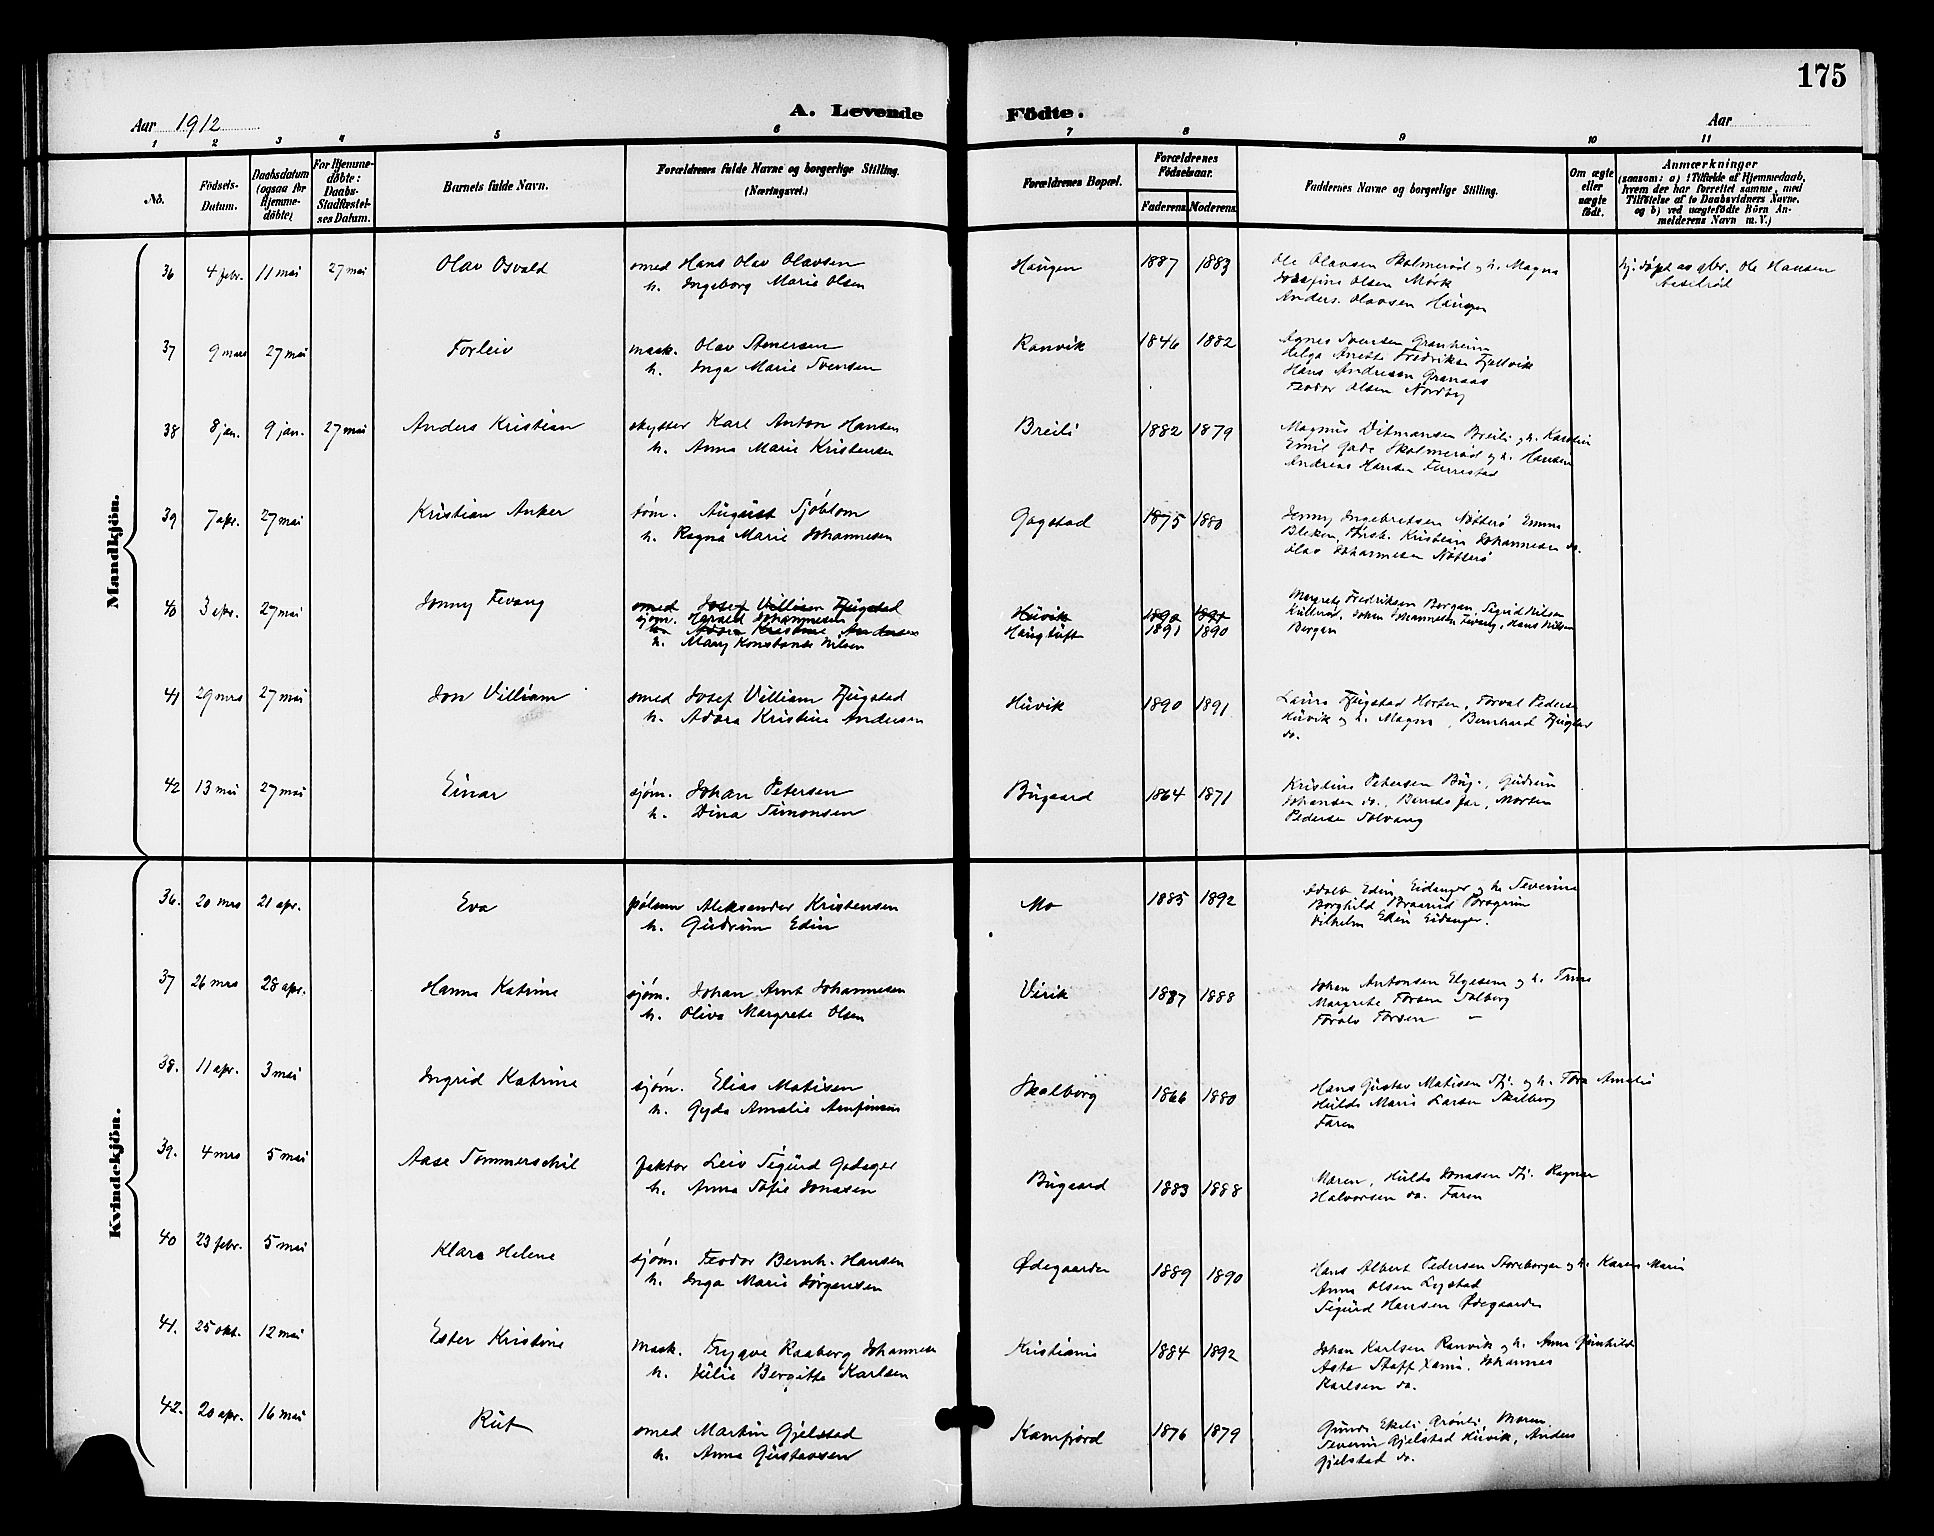 175
Aar 1912
A. Levende Födte.
Aar
1 2 3 4 5 6 7 8 9 10 11
No.
Födsels-Datum.
Daabsdatum (ogsaa for Hjemme-döbte)
For Hjemme-döbte: Daabs-Stadfæstel-ses Datum.
Barnets fulde Navn.
Forældrenes fulde Navne og borgerlige Stilling. (Næringsvei.)
Forældrenes Bopæl.
Forældrenes Födselsaar.
Faderens Moderens
Faddernes Navne og borgerlige Stilling.
Om ægte eller uægte födt.
Anmærkninger
(saasom: a) i Tilfælde af Hjemmedaab,
hvem der har forrettet samme, med
Tilföielse af to Daabsvidners Navne,
og b) ved uægtefödte Börn An-
melderens Navn m. V.)
Mandkjön.
36 4 febr. 11 mai 27 mai Olav Osvald smed Hans Olav Olavsen Haugen 1887 1883 Ole Olavsen Skolmerød og h. Magna hj. døpt av gbr. Ole Hansen
h. Ingeborg Marie Olsen Josefine Olsen Mørk
Anders Olavsen Haugen
37 9 mars 27 mai Torleiv mask. Olav Ranvik 1846 1882 Agnes Svensen Granheim
h. Inga Marie Svensen Helga Anette Fredriksen Fjellvik
Hans Andresen Granaas
Teodor Olsen Nordby
38 8 jan. 9 jan. 27 mai Anders Kristian skytter Karl Anton Hansen Breili 1882 1879 Magnus Ditmansen Breili og h.
h. Anna Marie Kristensen Emil Gade Skolmerød og h. Hansen
Andreas Hansen Furustad
39 7 apr. 27 mai Kristian Anker sjøm. August Sjöblom Gogstad 1875 1880 Jenny Ingebretsen Nøtterø Emma
h. Ragna Marie Johannesen Bleken, Kristian Johannesen do.
Olav Johannesen Nøtterø
40 3 apr. 27 mai Jonny Fevang smed Josef Villiam Fjugstad Huvik 1890 1891 Margrete Fredriksen Bergan, Sigrid Nilsen
sjøm. Harald Johannesen Haugtuft 1891 1890 Johan Johannesen Fevang, Hans Nilsen
h. Adora Kristine Andersen Bergan
h. Mary Konstanse Nilsen
41 29 mrs 27 mai Jon Villiam smed Josef Villiam Fjugstad Huvik 1890 1891 Laura Fjugstad Horten, Torval Pedersen
h. Adora Kristine Andersen Huvik og h. Magna, Bernhard Fjugstad
do.
42 13 mai 27 mai Einar sjøm. Johan Petersen Bugaard 1864 1871 Kristine Petersen Bug., Gudrun
h. Dina Simonsen Johansen do., far, Morten
Pedersen Solvang
Kvindekjön.
36. 20 mrs 21 apr. Eva Aleksander Kristensen Mo 1885 1892 Edin, Eidanger og h. Severine
h. Gudrun Edin Borghild Braarud Bragerun
Vilhelm Edin Eidanger.
37 26 mrs 28 apr. Hanna Katrine sjøm. Johan Arnt Johannesen Virik 1887 1888 Johan Antonsen Elgesem og h. Trine
h. Oliva Margrete Olsen Margrete Torsen Solberg
Torsen "
38. 11 apr. 3 mai Ingrid Katrine sjøm. Elias Matisen Skalberg 1866 1880 Hans Gustav Matisen Stj. og h. Tora Amalie
h. Gyda Amalie Arnfinsen Hulda Marie Larsen Skalberg
Faren
39. 4 mrs 5 mai Aase Sommerschil faktor Leiv Sigurd Godager Bugaard 1883 1888 Moren, Hulda Jonasen Stj. Ragnar
h. Anna Sofie Jonasen Halvorsen do. Faren
40 23 febr. 5 mai Klara Helene sjøm. Teodor Bernh. Hansen Ødegaarden 1889 1890 Hans Albert Pedersen Storebergan og h. Karen Marie
h. Inga Marie Jørgensen Anna Olsen Lystad
Sigurd Hansen Ødegaarden
41. 25 okt. 12 mai Ester Kristine mask. Trygve Raaberg Johannesen Kristiania 1884 1892 Johan Karlsen Ranvik og h. Anna Gunhild
h. Julie Bergitte Karlsen Asta Johannes
Karlsen do.
42. 20 apr. 16 mai Rut smed Martin Gjelstad Kamfjord 1876 1879 Gunda Ekeli Grønli, Moren
h. Anna Gustavsen Severin Gjelstad Huvik, Anders
Gjelstad do.